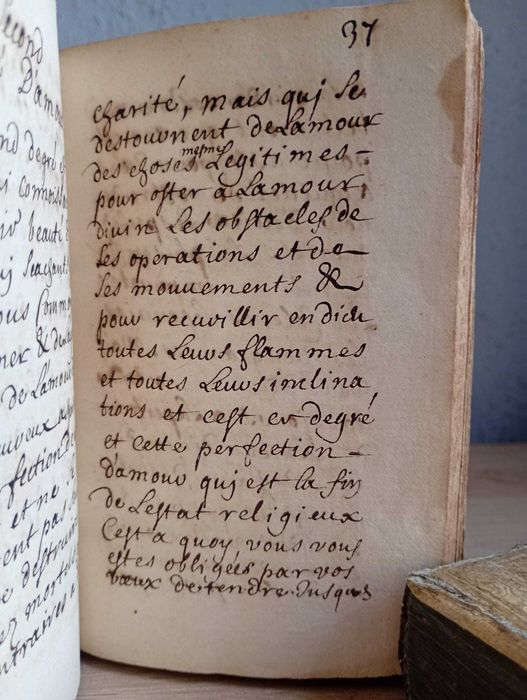 37
charité, mais qui se
destournent de Lamour
des choses mesme Legitimes -
pour oster a Lamour
divin Les obstacles de
ses operations et de
ses mouuements &
pour recuillir en dieu
toutes Leurs flammes
et toutes Leurs inclina
tions et cest ce degré
et cette perfection -
d'amour qui est la fin
de Lestat religieux
Cest a quoy vous vous
estes obligées par vos
vœux de tendre Jusques
econd
D'amou
nd degré
beauté
de Lamour
fection de
et ne
ent pas
destruire
mortel